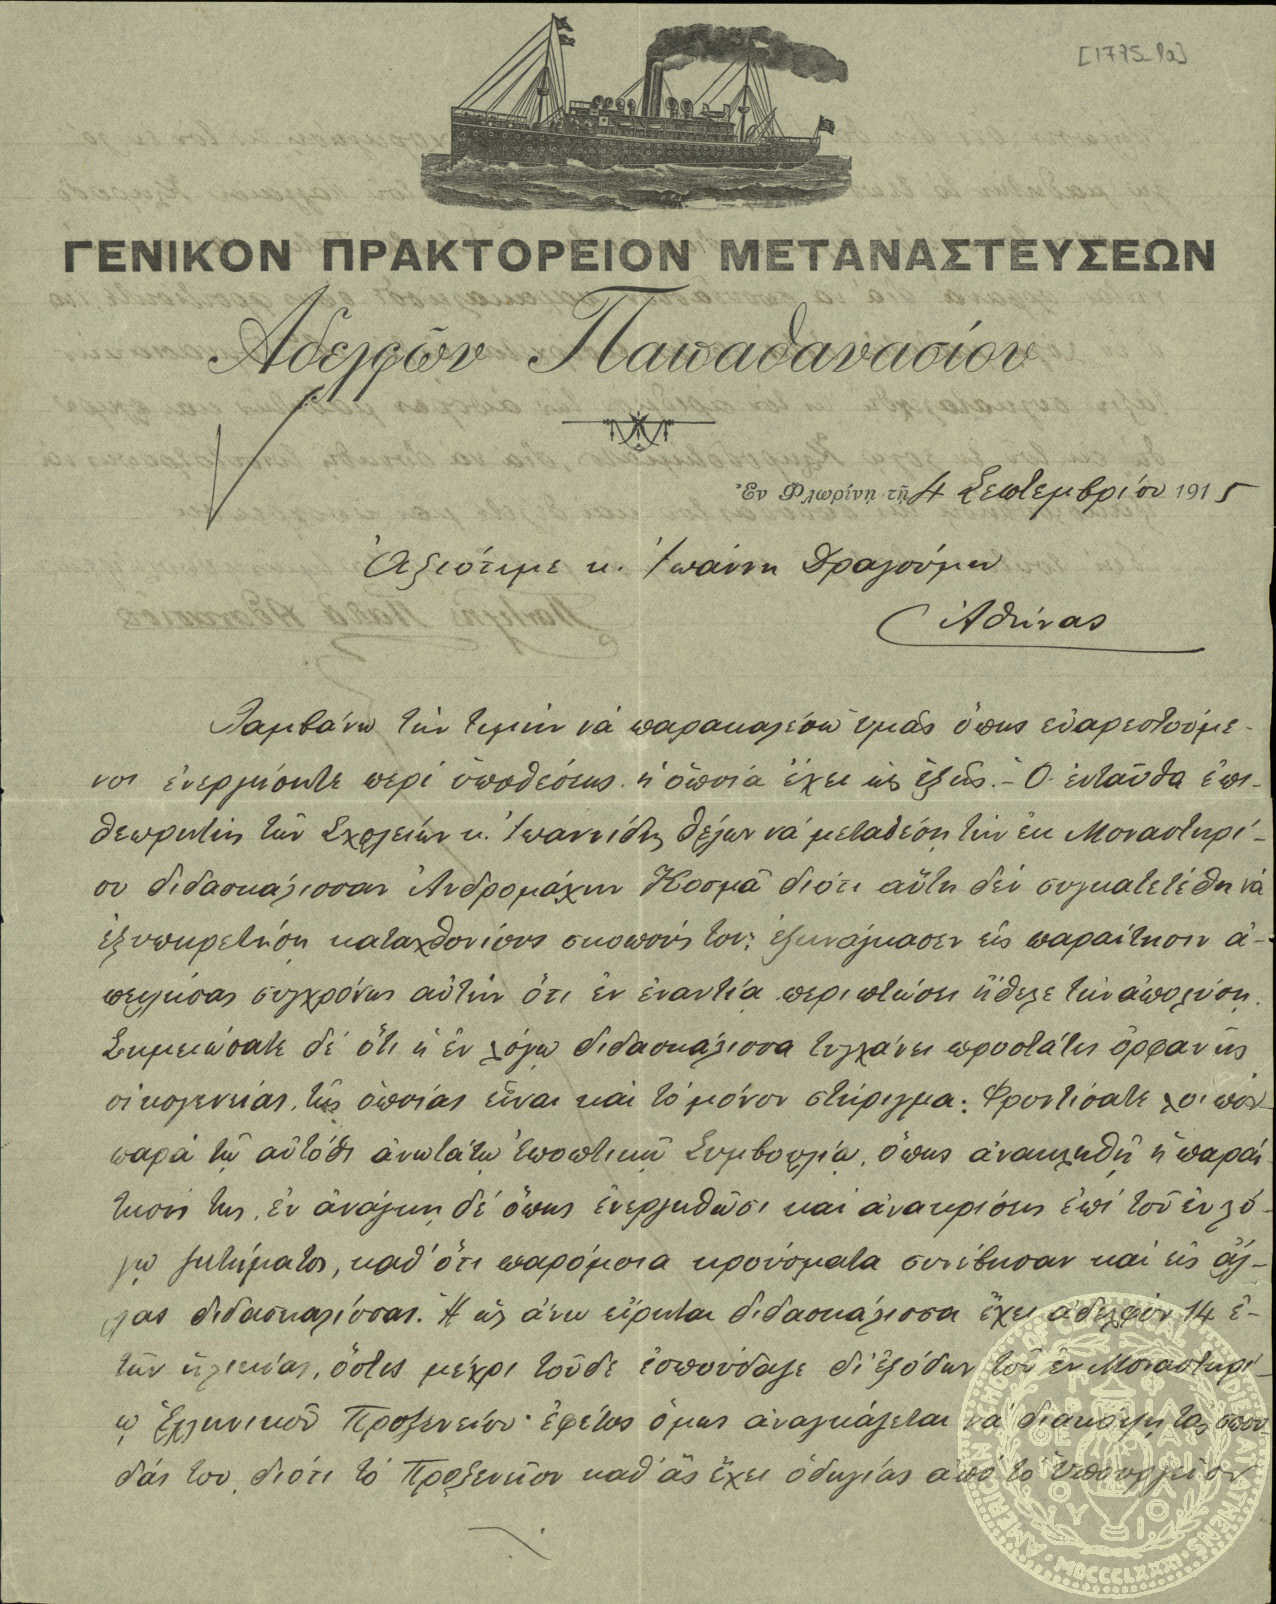 [1775_1a]
ΓΕΝΙΚΟΝ ΠΡΑΚΤΟΡΕΙΟΝ ΜΕΤΑΝΑΣΤΕΥΣΕΩΝ
Ἀδελφῶν Παπαθανασίου
Ἐν Φλωρίνῃ τῇ 4 Σεπτεμβρίου 1915
Ἀξιότιμε κ. Ἰωάννη Δραγούμη
Ἀθήνας
Λαμβάνω τὴν τιμὴν νὰ παρακαλέσω ὑμᾶς ὅπως εὐαρεστούμε-
νοι ἐνεργήσητε περὶ ὑποθέσεως ἡ ὁποία ἔχει ὡς ἑξῆς. - Ὁ ἐνταῦθα ἐπι-
θεωρητὴς τῶν Σχολείων κ. Ἰωαννίδης θέλων νὰ μεταθέσῃ τὴν ἐκ Μοναστηρί-
ου διδασκάλισσαν Ἀνδρομάχην Κοσμᾶ διότι αὕτη δὲν συγκατετέθη νὰ
ἐξυπηρετήσῃ καταχθονίους σκοπούς του, ἐξηνάγκασεν εἰς παραίτησιν ἀ-
πειλήσας συγχρόνως αὐτὴν ὅτι ἐν ἐναντίᾳ περιπτώσει ἤθελε τὴν ἀπολύσῃ.
Σημειώσατε δὲ ὅτι ἡ ἐν λόγῳ διδασκάλισσα τυγχάνει προστάτις ὀρφανῆς
οἰκογενείας, τῆς ὁποίας εἶναι καὶ τὸ μόνον στήριγμα. Φροντίσατε λοιπὸν
παρὰ τῷ αὐτόθι ἀνωτάτῳ Ἐποπτικῷ Συμβουλίῳ, ὅπως ἀνακληθῇ ἡ παραί
τησίς της, ἐν ἀνάγκῃ δὲ ὅπως ἐνεργηθῶσι καὶ ἀνακρίσεις ἐπὶ τοῦ ἐν λό-
γῳ ζητήματος, καθ' ὅτι παρόμοια κρούσματα συνέβησαν καὶ εἰς ἄλ-
λας διδασκαλίσσας. Ἡ ὡς ἄνω εἴρηται διδασκάλισσα ἔχει ἀδελφὸν 14 ἐ-
τῶν ἡλικίας, ὅστις μέχρι τοῦδε ἐσπούδαζε δι' ἐξόδων τοῦ ἐν Μοναστηρί-
ῳ Ἑλληνικοῦ Προξενείου· ἐφέτος ὅμως ἀναγκάζεται νὰ διακόψῃ τὰς σπου-
δάς του, διότι τὸ Προξενεῖον καθ' ἃς ἔχει ὁδηγίας ἀπὸ τὸ Ὑπουργεῖον